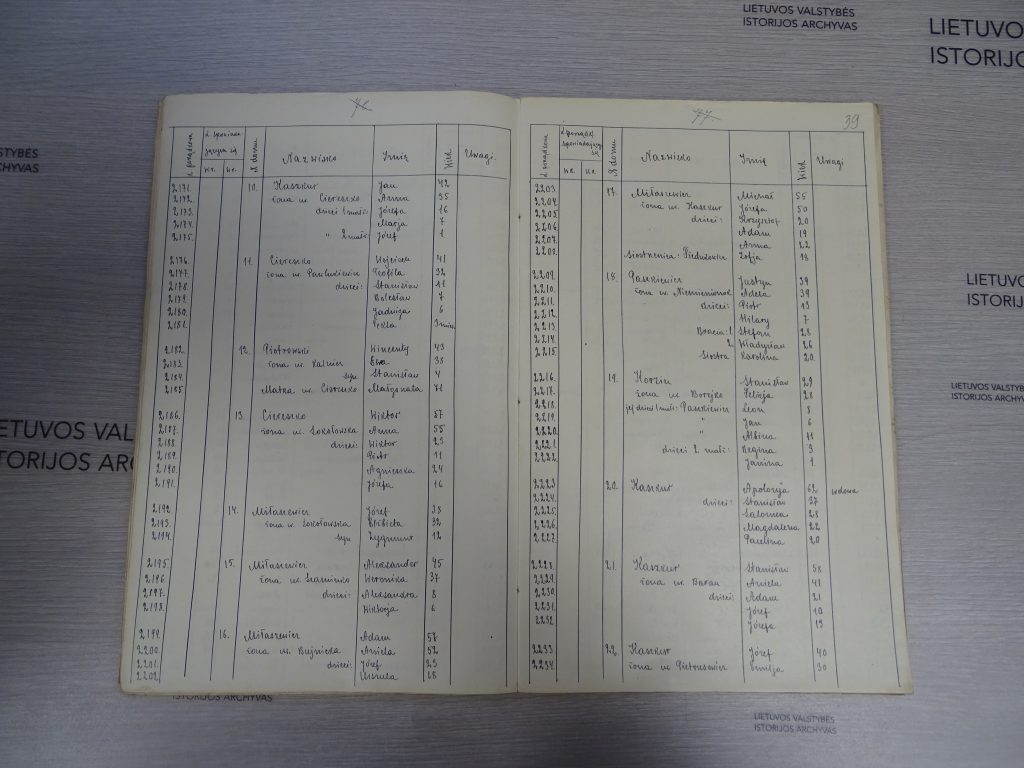 LIETUVOS VALSTYBĖS
ISTORIJOS ARCHYVAS
LIETUVO
ISTORIJO
76
L. porządkowa
L. spowiada
jących się
№ domu
Nazwisko
Imię
Wiek
Uwagi.
2171. 10. Kaszkur Jan 42
2172. żona ur. Ciereszko Anna 35
2173. dzieci 1 małż: Józefa 16
2174. Marja 7
2175. " 2 małż: Józef 1
2176. 11. Ciereszko Wojciech 41
2177. żona ur. Pawlukiewicz Teofila 32
2178. dzieci: Stanisław 11
2179. Bolesław 7
2180. Jadwiga 6
2181. Tekla 3 mies.
2182. 12. Piotrowski Wincenty 43
2183. żona ur. Ewa 38
2184. syn Stanisław 4
2185. Matka ur. Ciereszko Małgorzata 71
2186. 13. Ciereszko Wiktor 57
2187. żona ur. Sokołowska Anna 55
2188. dzieci: Wiktor 23
2189. Piotr 11
2190. Agnieszka 24
2191. Józefa 16
2192. 14. Miłaszewicz Józef 38
2193. żona ur. Sokołowska Elżbieta 32
2194. syn Zygmunt 12
2195. 15. Miłaszewicz Aleksander 45
2196. żona ur. Weronika 37
2197. dzieci: Aleksandra 8
2198. Wiktorja 6
2199. 16. Miłaszewicz Adam 57
2200. żona ur. Bujnicka Aniela 52
2201. dzieci: Józef 23
2202. Urszula 28
77
39
L. porządkowa
L. porządk.
spowiadających
się
№ domu
Nazwisko
Imię
Wiek
Uwagi
2203. 17. Miłaszewicz Michał 55
2204. żona ur. Kaszkur Józefa 50
2205. dzieci: Krzysztof 20
2206. Adam 19
2207. Anna 22
2208. siostrzenica: Zofja 18
2209. 18. Paszkiewicz Justyn 39
2210. żona ur. Adela 39
2211. dzieci: Piotr 13
2212. Hilary 7
2213. Bracia: 1. Stefan 28
2214. 2. Władysław 26
2215. Siostra Karolina 20.
2216. 19. Stanisław 29
2217. żona ur. Borejko Felicja 28
2218. jej dzieci 1 małż: Paszkiewicz Leon 8
2219. " Jan 6
2220. " Albina 11
2221. dzieci 2 małż: Regina 3
2222. Janina 1.
2223. 20. Kaszkur Apolonja 62 wdowa
2224. dzieci: Stanisław 37
2225. Salomea 28
2226. Magdalena 22
2227. Paulina 20
2228. 21. Kaszkur Stanisław 58
2229. żona ur. Baran Aniela 41
2230. dzieci: Adam 21
2231. Józef 10
2232. Józefa 19
2233. 22. Kaszkur Józef 40
2234. żona ur. Pietrusewicz Emilja 30
LIETUVOS VALSTYBĖS
ISTORIJOS ARCHYVAS